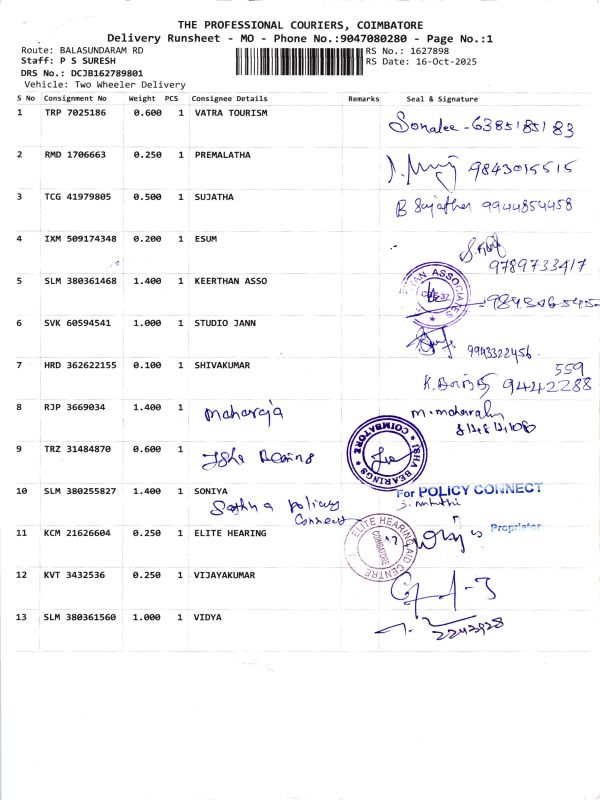 THE PROFESSIONAL COURIERS, COIMBATORE
Delivery Runsheet - MO - Phone No.:9047080280 - Page No.:1
Route: BALASUNDARAM RD
RS No.: 1627898
Staff: P S SURESH
RS Date: 16-Oct-2025
DRS No.: DCJB162789801
Vehicle: Two Wheeler Delivery
S No Consignment No Weight PCS Consignee Details Remarks Seal & Signature
1 TRP 7025186 0.600 1 VATRA TOURISM
Sonalee - 6385185183
2 RMD 1706663 0.250 1 PREMALATHA
9843015515
3 TCG 41979805 0.500 1 SUJATHA
B Sujatha 9944854458
4 IXM 509174348 0.200 1 ESUM
9789733417
5 SLM 380361468 1.400 1 KEERTHAN ASSO
ASSOCIATES
6 SVK 60594541 1.000 1 STUDIO JANN
9943322456
7 HRD 362622155 0.100 1 SHIVAKUMAR
559
9442288
8 RJP 3669034 1.400 1 Maharaja
9 TRZ 31484870 0.600 1 Isha Bearings
ISHA BEARINGS COIMBATORE
10 SLM 380255827 1.400 1 SONIYA
Sathya policy
Connect
For POLICY CONNECT
Proprietor
11 KCM 21626604 0.250 1 ELITE HEARING
ELITE HEARING AID CENTRE COIMBATORE
12 KVT 3432536 0.250 1 VIJAYAKUMAR
13 SLM 380361560 1.000 1 VIDYA
2243928